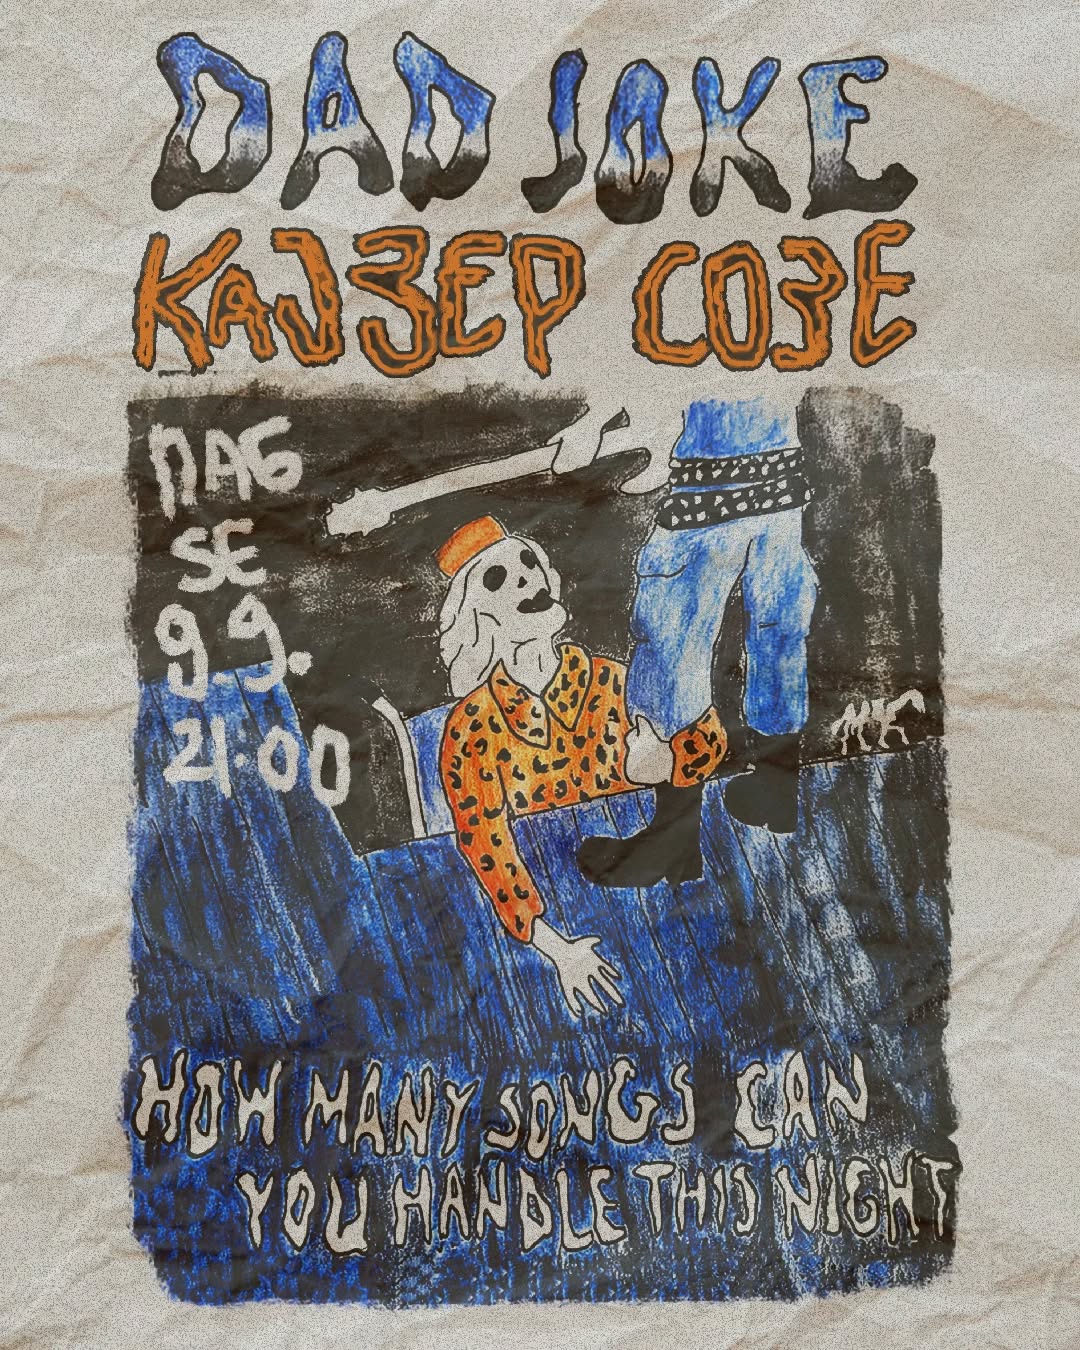 DAD JOKE
КАЈЗЕР СОЗЕ
DAG
SE
9.9.
21.00
HOW MANY SONGS CAN
YOU HANDLE THIS NIGHT